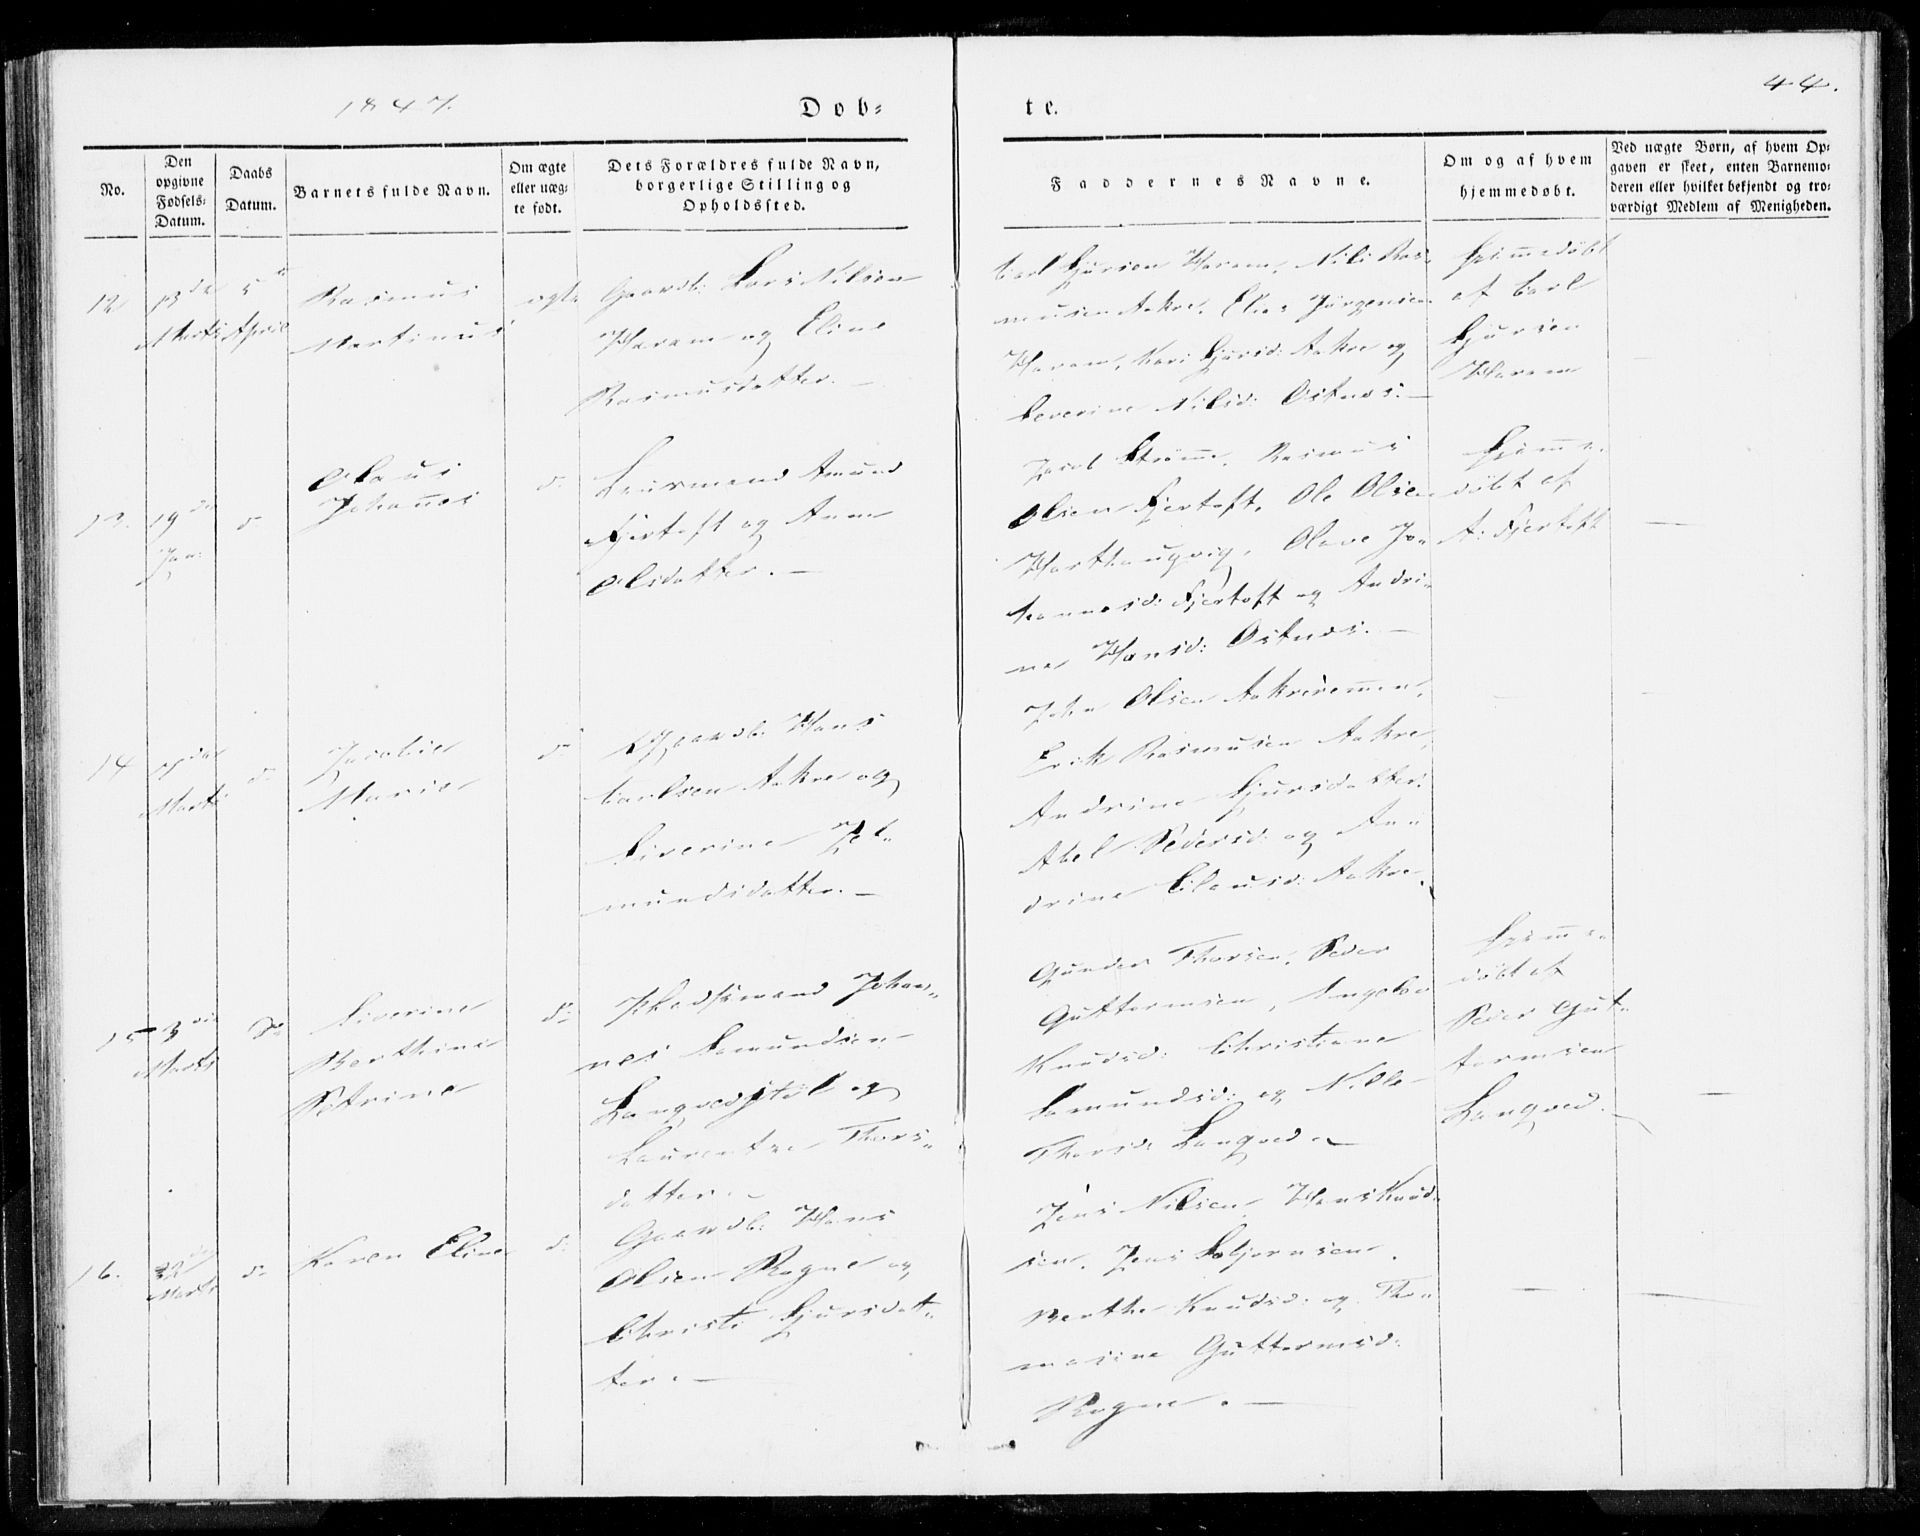 1847.
Døb-
te.
44.
No.
Den
opgivne
Fødsels-
Datum.
Daabs
Datum.
Barnets fulde Navn.
Om ægte
eller uæg-
te født.
Dets Forældres fulde Navn,
borgerlige Stilling og
Opholdssted.
Faddernes Navne.
Om og af hvem
hjemmedøbt.
Ved uægte Børn, af hvem Op-
gaven er skeet, enten Barnemo-
deren eller hvilket bekjendt og tro-
værdigt Medlem af Menigheden.
12
13de
Marts
5te
April
Rasmus
Martinus
ægte
Gaardb: Lars Nilsen
Haram og Eline
Rasmusdatter. —
Carl Sjursen Haram, Nils Ras-
musen Aakre, Elias Jørgensen
Haram, Kari Sjursd: Aakre og
Severine Nilsd: Østnæs. —
Hjemmedøbt
af Carl
Sjursen
Haram
13.
19de
Jan:
d
Olaus
Johannes
d.
Huusmand Amund
Fjertoft og Anne
Olsdatter. —
Jacob Strømme, Rasmus
Olsen Fjertoft, Ole Olsen
Harthaugvig, Olave Jo-
hannesd: Fjertoft og Andri-
ne Hansd: Østnæs. —
Hjemme-
døbt af
A. Fjertoft
14
Marts
d.
Jacobie
Marie
d
Gaardb: Hans
Carlsen Aakre og
Siverine Jet-
mundsdatter. —
John Olsen Aakreremmen,
Erik Rasmusen Aakre,
Andrine Sjursdatter,
Abel Pedersd: og An-
drine Clausd: Aakre.
15
3die
Marts
do
Siverine
Berthine
Petrine
do
Pladsmand Johan-
nes Samundsen
Langvedstøl og
Laurentze Thors-
datter. —
Gunder Thorsen, Peder
Guttormsen, Ingeborg
Knudsd: Christiane
Samundsd: og Nille
Thorsd: Langved. —
Hjemme-
døbt af
Peder Gut-
tormsen
Langved.
16.
Marts
d.
Karen Eline
d:
Gaardb: Hans
Olsen Rogne og
Christi Sjursdat-
ter. —
Jens Nilsen, Hans Knud-
sen, Jens Esbjørnsen,
Berthe Knudsd: og Tho-
masine Guttormsd:
Rogne. —